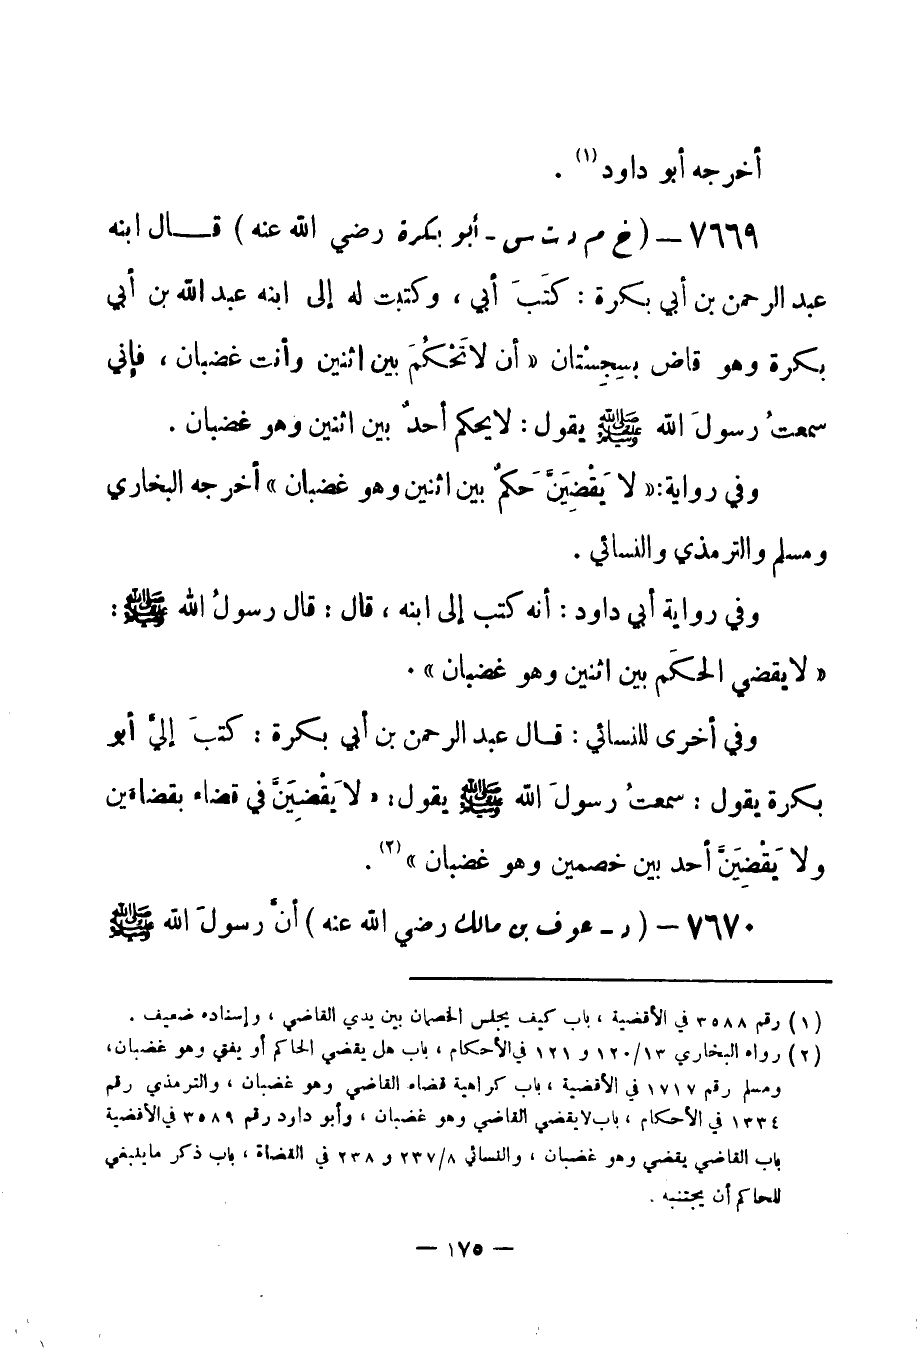 أخرجه أبو داود (١) .
٧٦٦٩ – ( خ م د ت س - أبو بكرة رضي الله عنه ) قـــال ابنه
عبد الرحمن بن أبي بكرة : كَتَبَ أبي ، وكتبت له إلى ابنه عبد الله بن أبي
بكرة وهو قاض بسِجِسْتان « أن لاتَحْكُمَ بين اثنين وأنت غضبان ، فإني
سمعتُ رسولَ الله ﷺ يقول : لايحكم أحدٌ بين اثنين وهو غضبان .
وفي رواية : « لا يَقْضِيَنَّ حَكَمٌ بين اثنين وهو غضبان » أخرجه البخاري
ومسلم والترمذي والنسائي .
وفي رواية أبي داود : أنه كتب إلى ابنه ، قال : قال رسولُ الله ﷺ :
« لايقضي الحكَم بين اثنين وهو غضبان » .
وفي أخرى للنسائي : قــال عبد الرحمن بن أبي بكرة : كتبَ إليَّ أبو
بكرة يقول : سمعتُ رسولَ الله ﷺ يقول : « لا يَقْضِيَنَّ في قضاء بقضاءين
ولا يَقْضِيَنَّ أحد بين خصمين وهو غضبان » (٢) .
٧٦٧٠ – ( د - عوف بن مالك رضي الله عنه ) أنَّ رسولَ الله ﷺ
(١) رقم ٣٥٨٨ في الأقضية ، باب كيف يجلس الخصمان بين يدي القاضي ، وإسناده ضعيف .
(٢) رواه البخاري ١٢٠/١٣ و ١٢١ في الأحكام ، باب هل يقضي الحاكم أو يفتي وهو غضبان ،
ومسلم رقم ١٧١٧ في الأقضية ، باب كراهية قضاء القاضي وهو غضبان ، والترمذي رقم
١٣٣٤ في الأحكام ، باب لايقضي القاضي وهو غضبان ، وأبو داود رقم ٣٥٨٩ في الأقضية
باب القاضي يقضي وهو غضبان ، والنسائي ٢٣٧/٨ و ٢٣٨ في القضاة ، باب ذكر ماينبغي
للحاكم أن يجتنبه .
– ١٧٥ –